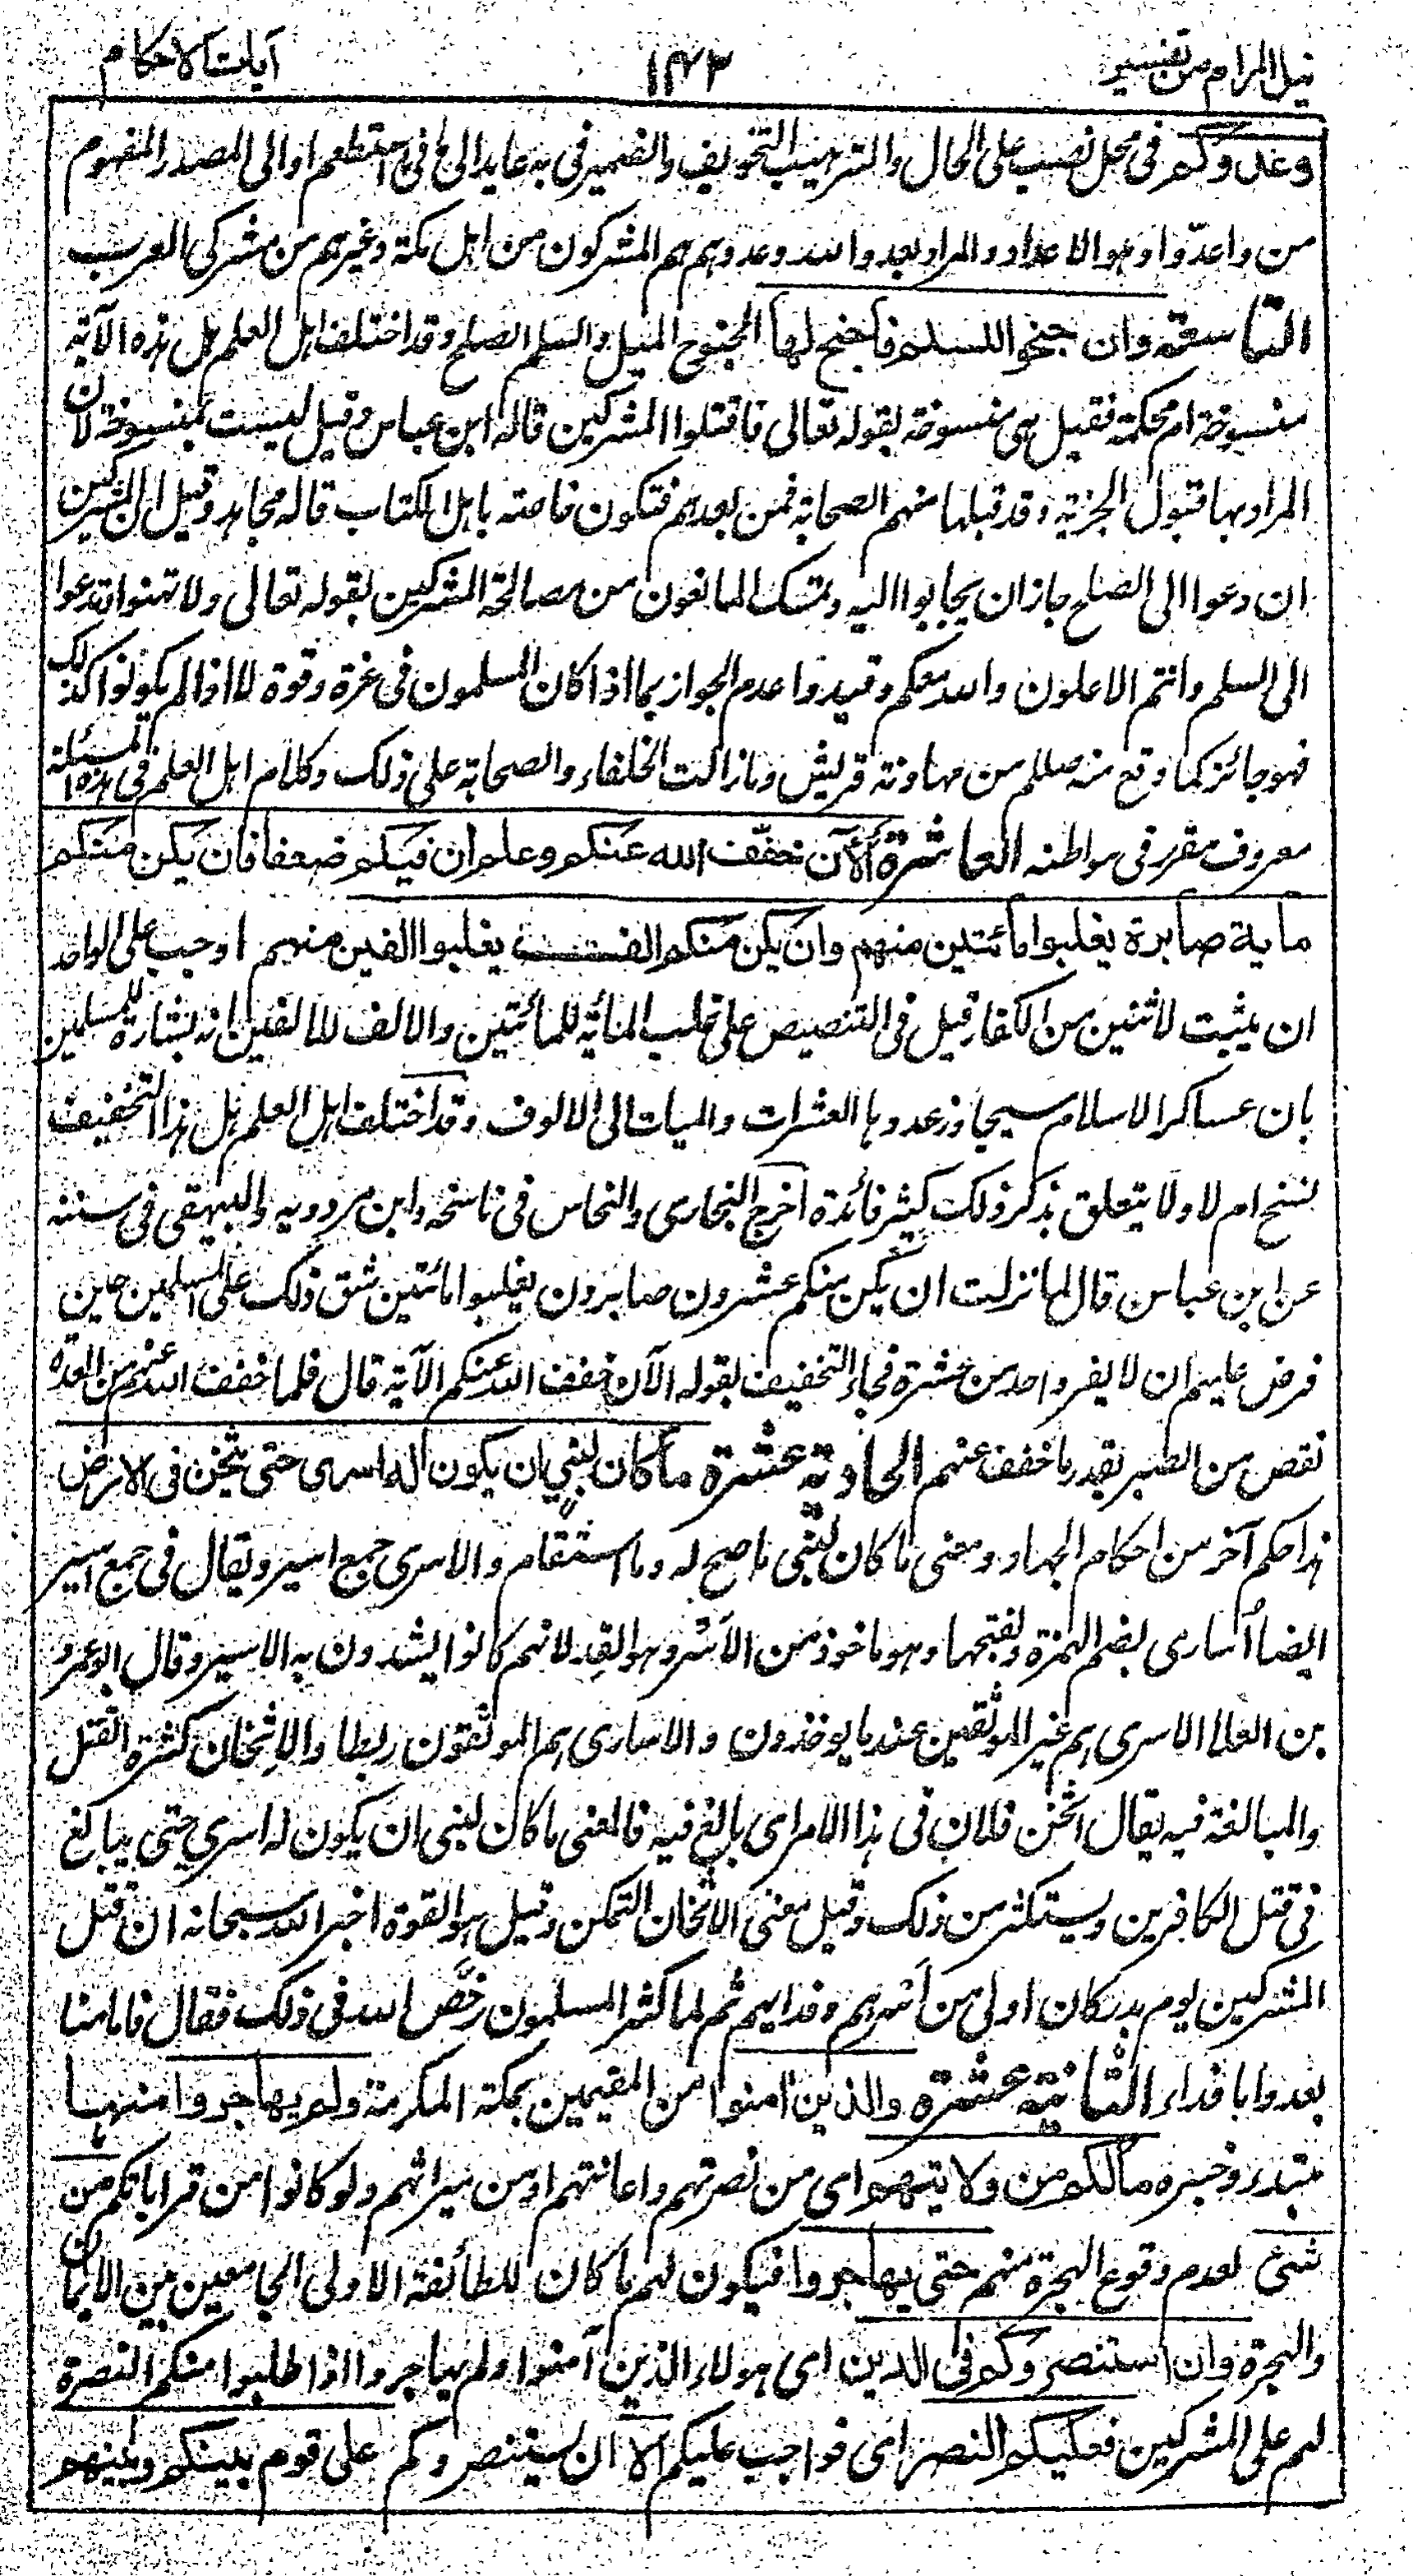 نيل المرام من تفسير ١٤٣ آيات الاحكام
وعدوكم في محل نصب على الحال والترهيب التخويف والضمير في به عايد الى ما في ما استطعتم او الى المصدر المفهوم
من واعدّوا وهو الاعداد والمراد بعدو الله وعدوهم هم المشركون من اهل مكة وغيرهم من مشركى العرب
التاسعة وان جنحوا للسلم فاجنح لها الجنوح الميل والسلم الصلح وقد اختلف اهل العلم هل هذه الآية
منسوخة ام محكمة فقيل هى منسوخة بقوله تعالى فاقتلوا المشركين قاله ابن عباس وقيل ليست بمنسوخة لان
المراد بها قبول الجزية وقد قبلها منهم الصحابة فمن بعدهم فتكون خاصة باهل الكتاب قاله مجاهد وقيل ان المشركين
ان دعوا الى الصلح جاز ان يجابوا اليه وتمسك المانعون من مصالحة المشركين بقوله تعالى ولا تهنوا وتدعوا
الى السلم وانتم الاعلون والله معكم وقيدوا عدم الجواز بما اذا كان المسلمون في عزة وقوة لا اذا لم يكونوا كذلك
فهو جائز كما وقع منه صللم من مهادنة قريش وما زالت الخلفاء والصحابة على ذلك وكلام اهل العلم في هذه المسئلة
معروف مقرر في مواطنه العاشرة الآن خفّف الله عنكم وعلم ان فيكم ضعفا فان يكن منكم
ماية صابرة يغلبوا مائتين منهم وان يكن منكم الف يغلبوا الفين منهم اوجب على الواحد
ان يثبت لاثنين من الكفار قيل في التنصيص على غلب المائة للمائتين والالف للالفين انه بشارة للمسلمين
بان عساكر الاسلام سيجاوز عددها العشرات والميات الى الالوف وقد اختلف اهل العلم هل هذا التخفيف
نسخ ام لا ولا يتعلق بذكر ذلك كثير فائدة اخرج البخارى والنحاس في ناسخه وابن مردويه والبيهقى في سننه
عن ابن عباس قال لما نزلت ان يكن منكم عشرون صابرون يغلبوا مائتين شق ذلك على المسلمين حين
فرض عليهم ان لا يفر واحد من عشرة فجاء التخفيف بقوله الآن خفف الله عنكم الآية قال فلما خفف الله عنهم من العدة
نقص من الصبر بقدر ما خفف عنهم الحادية عشرة ما كان لنبي ان يكون له اسرى حتى يثخن في الارض
هذا حكم آخر من احكام الجهاد ومعنى ما كان لنبى ما صح له وما استقام والاسرى جمع اسير ويقال في جمع اسير
ايضا أسارى بضم الهمزة وبفتحها وهو ماخوذ من الأسر وهو القِد لانهم كانوا يشدون به الاسير وقال ابو عمرو
بن العلا الاسرى هم غير الموثقين عند ما يوخذون والاسارى هم الموثقون ربطا والاثخان كثرة القتل
والمبالغة فيه يقال اثخن فلان في هذا الامر اى بالغ فيه فالمعنى ما كان لنبى ان يكون له اسرى حتى يبالغ
في قتل الكافرين ويستكثر من ذلك وقيل معنى الاثخان التمكن وقيل هو القوة اخبر الله سبحانه ان قتل
المشركين يوم بدر كان اولى من اسرهم وفدايهم ثم لما كثر المسلمون رخّص الله في ذلك فقال فاما منا
بعد واما فداء الثانية عشرة والذين آمنوا من المقيمين بمكة المكرمة ولم يهاجروا منها
مبتدء وخبره مالكم من ولايتهم اى من نصرتهم واعانتهم او من ميراثهم ولو كانوا من قراباتكم من
شئ لعدم وقوع الهجرة منهم حتى يهاجروا فيكون لهم ما كان للطائفة الاولى الجامعين بين الايمان
والهجرة وان استنصروكم في الدين اى هولاء الذين آمنوا ولم يهاجروا اذا طلبوا منكم النصرة
لهم على المشركين فعليكم النصر اى فواجب عليكم الا ان يستنصروكم على قوم بينكم وبينهم